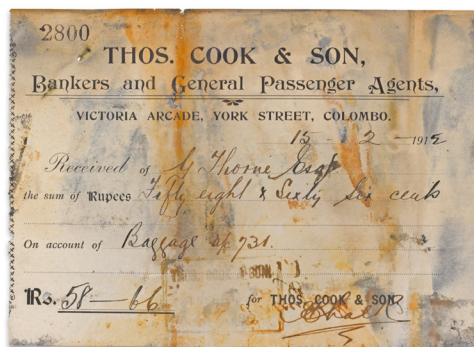 2800
THOS. COOK & SON,
Bankers and General Passenger Agents,
VICTORIA ARCADE, YORK STREET, COLOMBO.
15 - 2 - 1912
Received of G Thorne Esqr
the sum of Rupees Fifty eight & Sixty Six cents
On account of Baggage 731.
Rs. 58 - 66 for THOS. COOK & SON